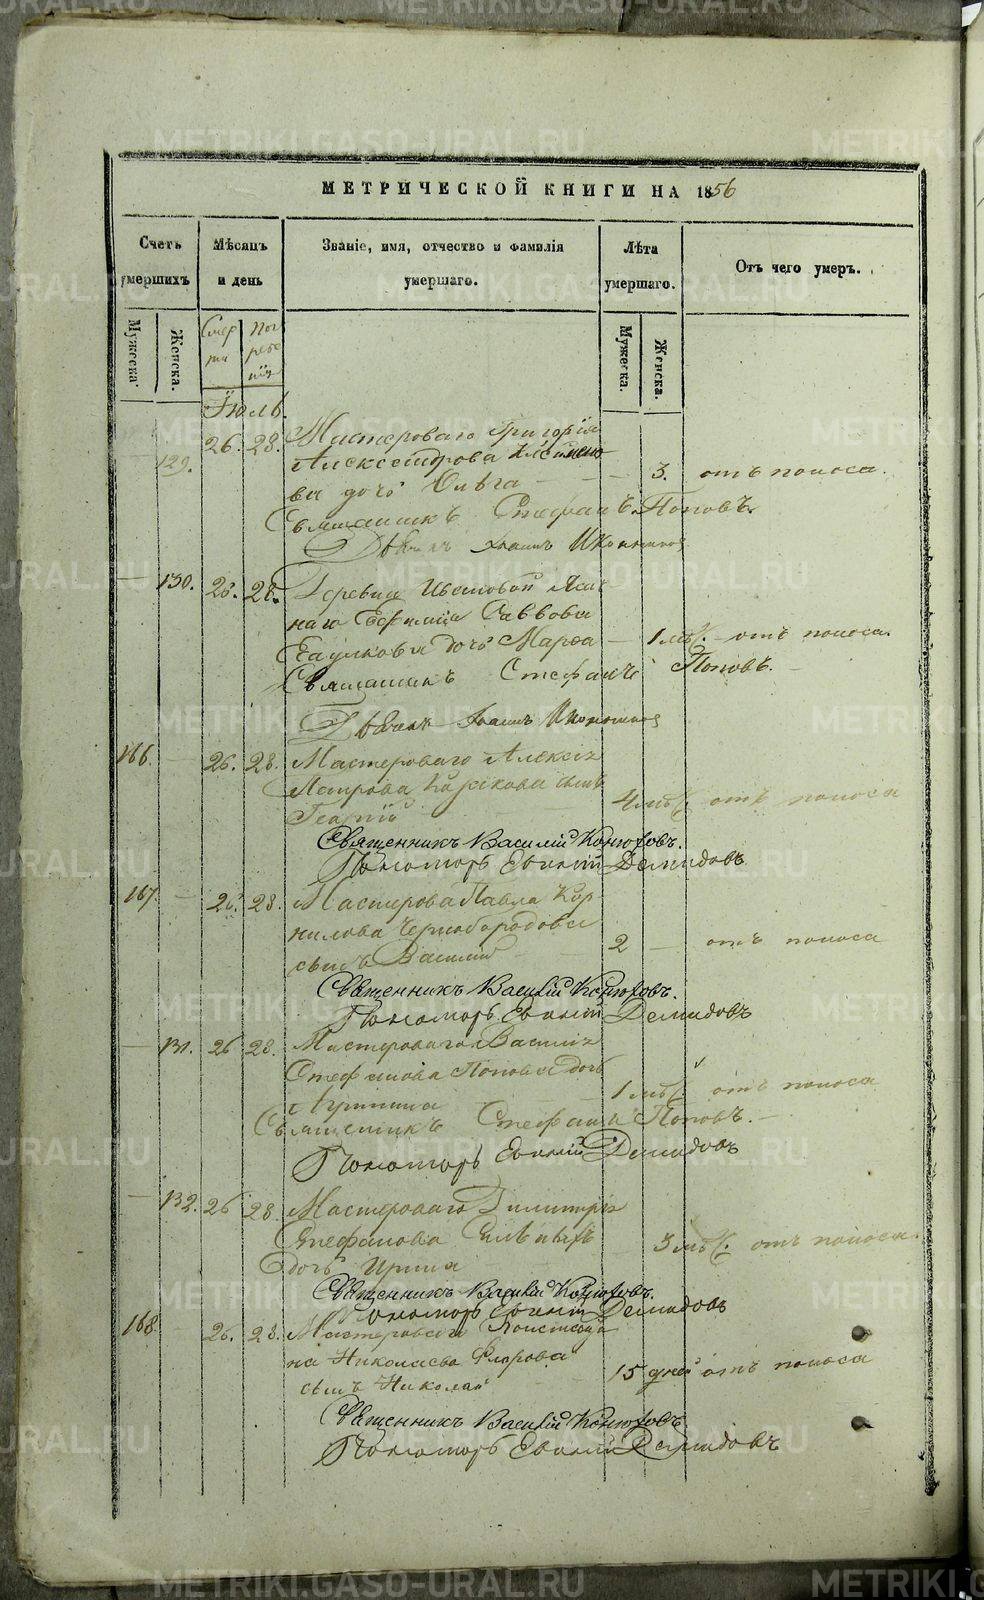 МЕТРИЧЕСКОЙ КНИГИ НА 1856
Счетъ умершихъ
Мѣсяцъ и день
Званіе, имя, отчество и фамилія умершаго.
Лѣта умершаго.
Отъ чего умеръ.
Мужеска.
Женска.
Смерти
Погребенія
Мужеска.
Женска.
Іюль.
129. 26. 28. Мастероваго Григорія
Александрова
ва дочь Ольга 3. отъ поноса.
Священникъ Стефанъ Поповъ.
Дьячекъ Иконниковъ
130. 26. 28. Деревни
Саввова
дочь Марѳа 1 мѣс. отъ поноса.
Священникъ Стефанъ Поповъ.
Дьячекъ Иконниковъ
166. 26. 28. Мастероваго Алексія
сынъ
Георгій 4 мѣс. отъ поноса
Священникъ Василій Конюховъ.
Пономарь Евгеній Демидовъ
167. 26. 28. Мастерова Павла Кор-
нилова Чернобородова
сынъ Василий 2 отъ поноса
Священникъ Василій Конюховъ.
Пономарь Евгеній Демидовъ
131. 26 28. Мастероваго Василія
Стефанова Попова дочь
1 мѣс. отъ поноса
Священникъ Стефанъ Поповъ.
Пономарь Евгеній Демидовъ
132. 26 28. Мастероваго Димитрія
Стефанова
дочь Ирина 3 мѣс. отъ поноса.
Священникъ Василій Конюховъ.
Пономарь Евгеній Демидовъ
168. 26. 28. Мастероваго Константи-
на Николаева Флорова
сынъ Николай 15 дней отъ поноса
Священникъ Василій Конюховъ.
Пономарь Евгеній Демидовъ
METRIKI.GASO-URAL.RU